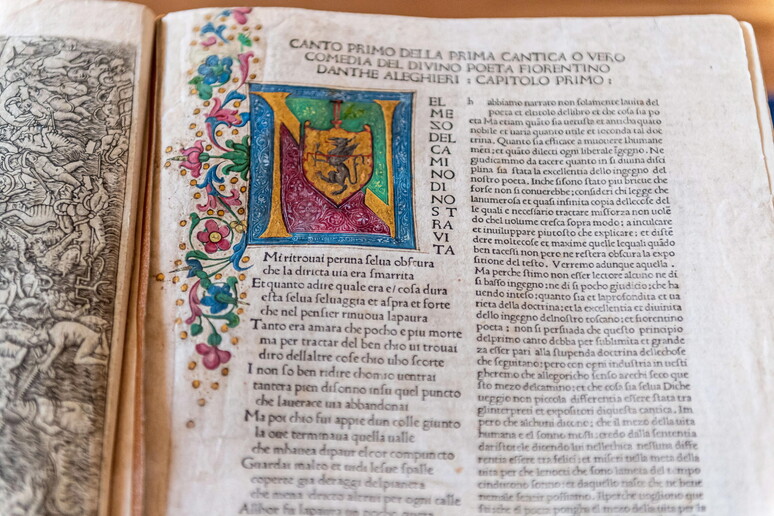 CANTO PRIMO DELLA PRIMA CANTICA O VERO
COMEDIA DEL DIVINO POETA FIORENTINO
DANTHE ALEGHIERI : CAPITOLO PRIMO :
N
EL
ME
SO
DEL
CA
MI
NO
DI
NO
S
TRA
VI
TA
Mi ritrouai peruna selua obscura
che la diricta uia era smarrita
Et quanto adire quale era e cosa dura
esta selua seluaggia et aspra et forte
che nel pensier rinuoua lapaura
Tanto era amara che pocho e piu morte
ma per tractar del ben chio ui trouai
diro dellaltre cose chio uho scorte
I non so ben ridire chomio uentrai
tantera pien disonno insu quel puncto
che lauerace uia abbandonai
Ma poi chio fui appie dun colle giunto
la oue terminaua quella ualle
che mhauea dipaur elcor compuncto
Guardai in alto et uidi lesue spalle
coperte gia deraggi delpianeta
che mena dricto altrui per ogni calle
Allhor fu
h abbiamo narrato non solamente lauita del
poeta et eltitolo dellibro et che cosa sia po
eta Ma etiam quanto sia uetusta et anticha quanto
nobile et uaria quanto utile et ioconda tal doc
trina. Quanto sia efficace a muouere lhumane
menti; et quanto dilecti ogni liberale igegno. Ne
giudicammo da tacere quanto in si diuina disci
plina sia stata la excellentia dello ingegno del
nostro poeta. Inche sisono stato piu brieue che
forse non si conuerrebbe; consideri chi legge che
lanumerosa et quasi infinita copia dellecose del
le quali e necessario tractare misforza non uolē
do chel uolume cresca sopra modo; a inculcare
et inuiluppare piutosto che explicare; et di stē
dere moltecose et maxime quelle lequali quādo
ben tacessi non pero ne restera obscura la expo
sitione del testo. Verremo adunque aquella.
Ma perche stimo non esser lectore alcuno ne di
si basso ingegno; ne di si pocho giudicio; che ha
uendo inteso; quanto sia et laprofondita et ua
rieta della doctrina; et la excellentia et diuinita
dello ingegno delnostro toscano; et fiorentino
poeta; non si persuada che questo principio
delprimo canto debba per sublimita et grande
za esser pari alla stupenda doctrina dellechose
che seguitano; pero con ogni industria in uesti
gheremo che allegoricho senso arechi seco que
sto mezo delcamino; et che cosa sia selua Diche
ueggio non piccola differentia essere stata tra
glinterpreti et expositori diquesta cantica. Im
pero che alchuni dicono; che il mezo della uita
humana e el sonno mossi; credo dalla sententia
daristotele dicendo lui nellethica nessuna diffe
rentia essere tra felici; et miseri nella meta della
uita per che lenocti che sono lameta del tempo
cinducono sonno; et daquello nasce che ne bene
ne male sentir possiamo. Ilperche uogliono que